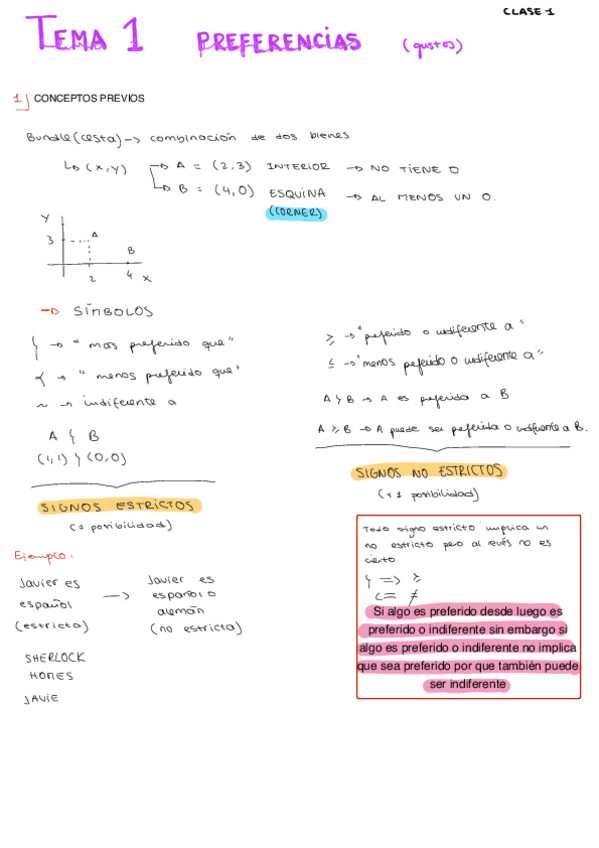 CLASE 1
TEMA 1 PREFERENCIAS (gustos)
1) CONCEPTOS PREVIOS
Bundle (cesta) → combinación de dos bienes
↳ (x,y) → A = (2,3) INTERIOR → NO TIENE 0
↳ B = (4,0) ESQUINA → AL MENOS UN 0.
(CORNER)
Y
3
A
B
2 4 X
→ SÍMBOLOS
≻ → "mas preferido que"
≺ → "menos preferido que"
~ → indiferente a
A ≻ B
(1,1) ≻ (0,0)
SIGNOS ESTRICTOS
(1 posibilidad)
≽ → "preferido o indiferente a"
≼ → "menos preferido o indiferente a"
A ≻ B → A es preferida a B
A ≽ B → A puede ser preferida o indiferente a B.
SIGNOS NO ESTRICTOS
(+1 posibilidad)
Ejemplo:
Javier es español (estricta) → Javier es español o alemán (no estricta)
SHERLOCK
HOMES
JAVIE
Todo signo estricto implica un
no estricto pero al revés no es
cierto
≻ => ≽
<= ≠
Si algo es preferido desde luego es
preferido o indiferente sin embargo si
algo es preferido o indiferente no implica
que sea preferido por que también puede
ser indiferente